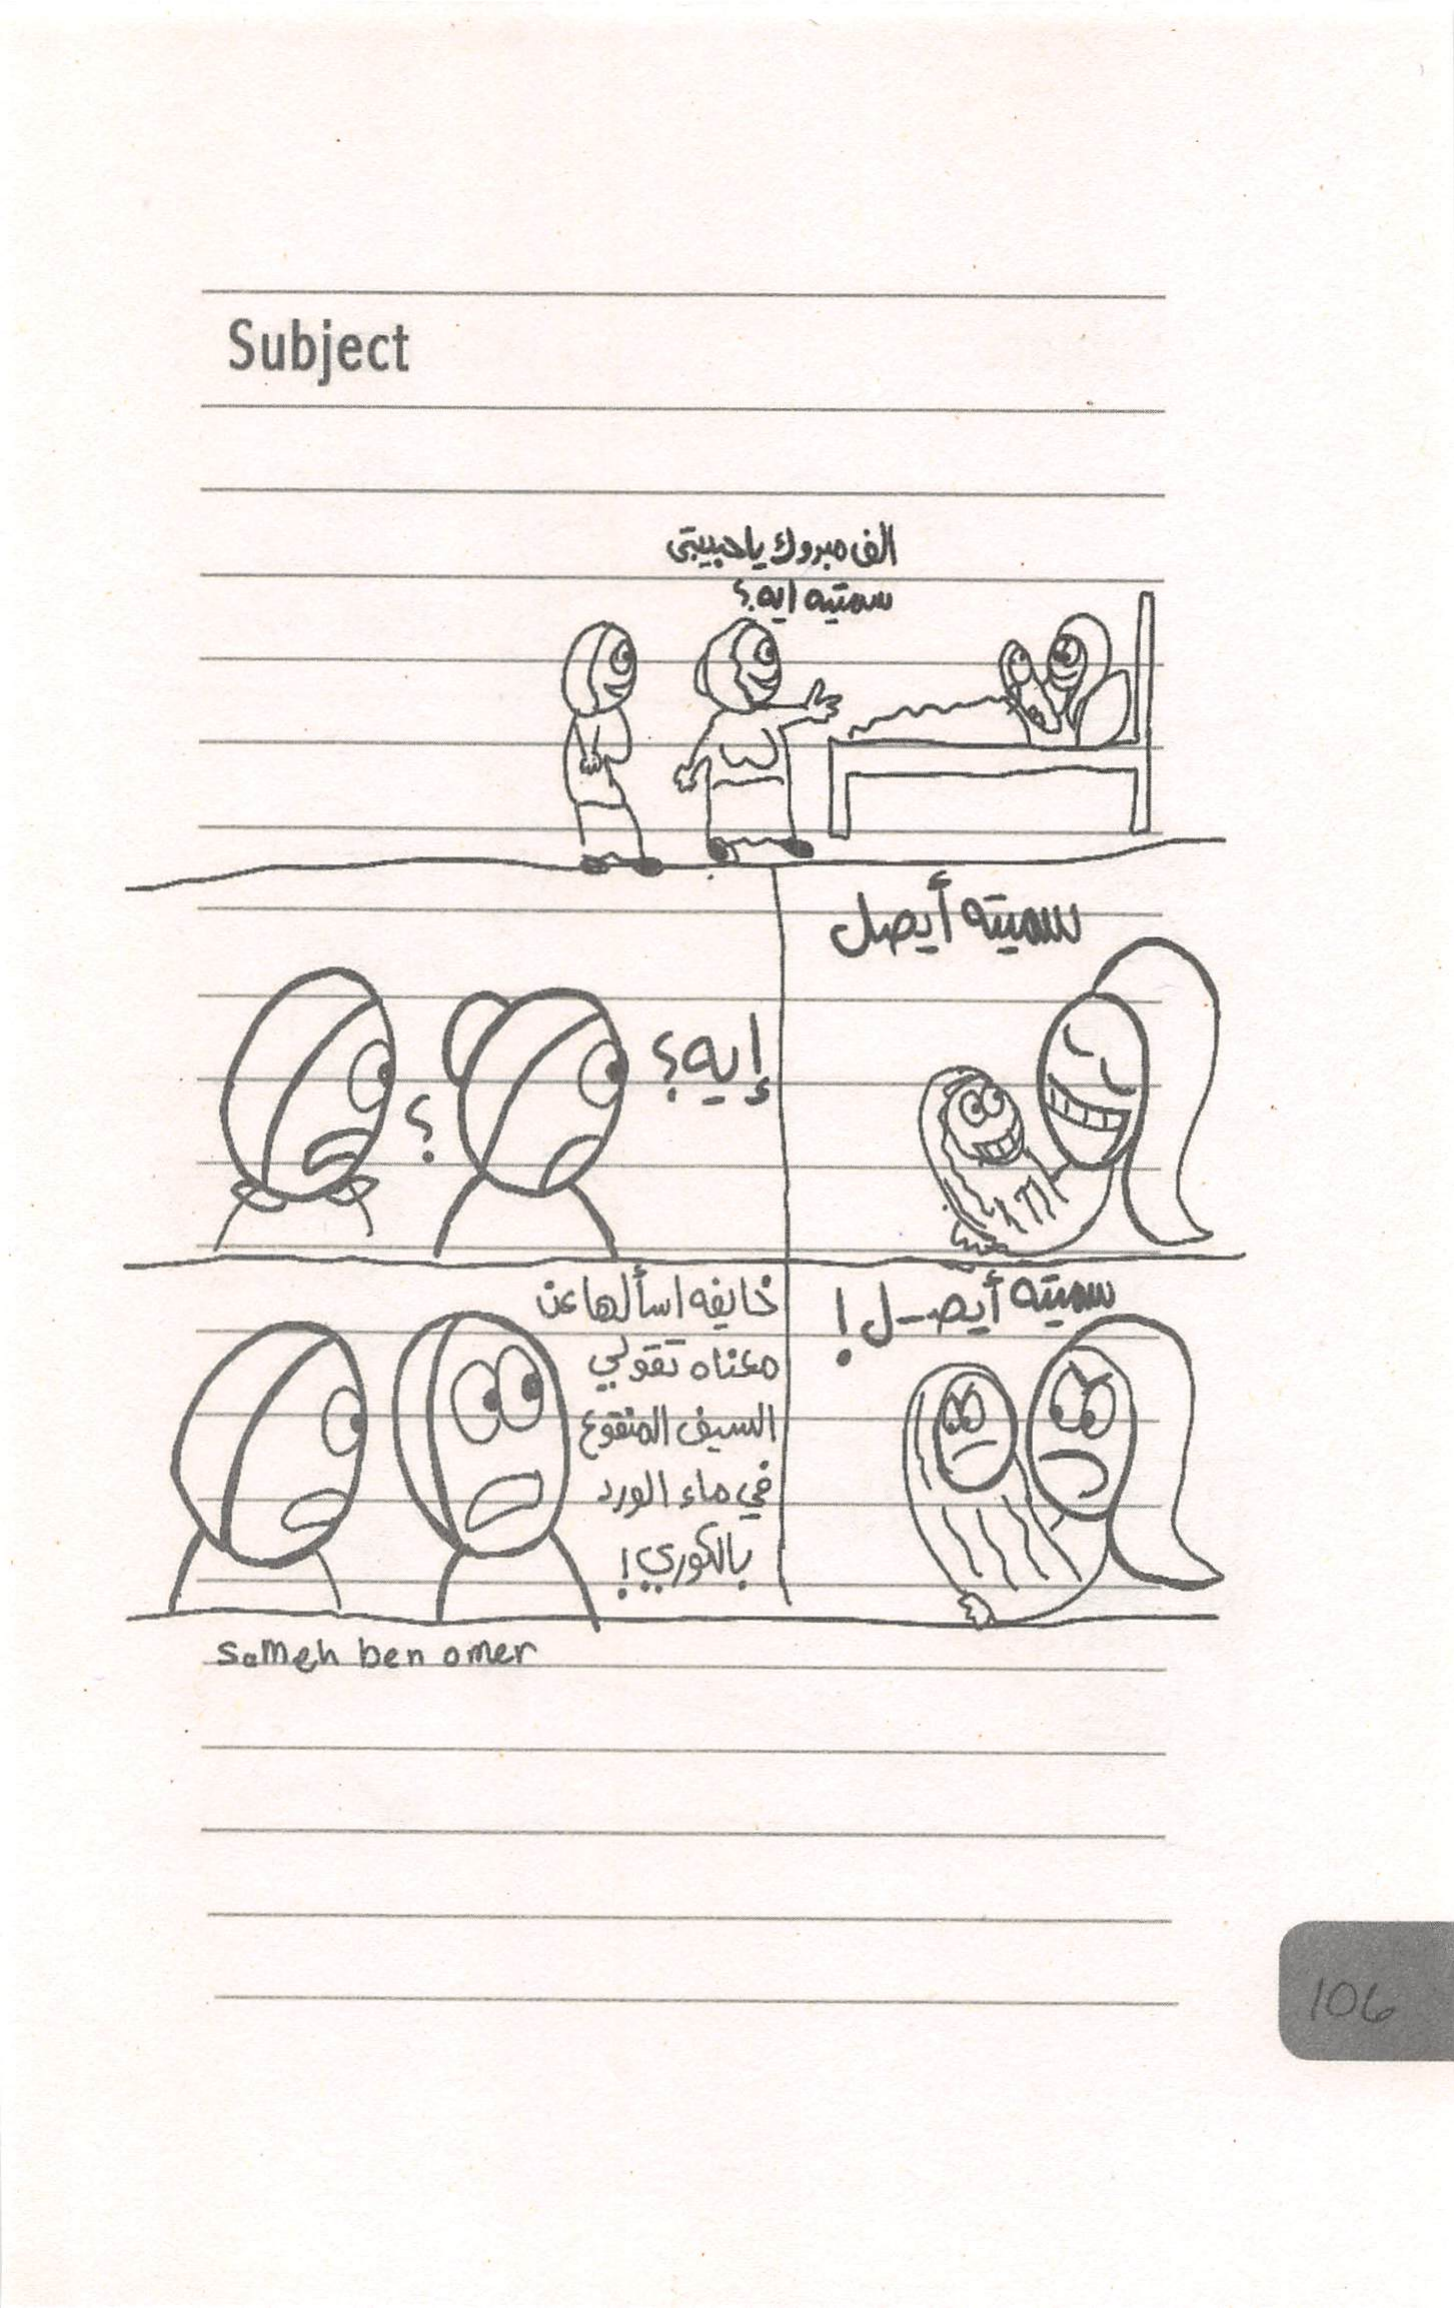 Subject
الف مبروك يا حبيبتى
سمتيه ايه؟
سميته أيصل
إيه؟
؟
سميته أيصـل!
خايفه اسألها عن
معناه تقولي
السيف المنقوع
في ماء الورد
بالكوري!
Sameh ben omer
106